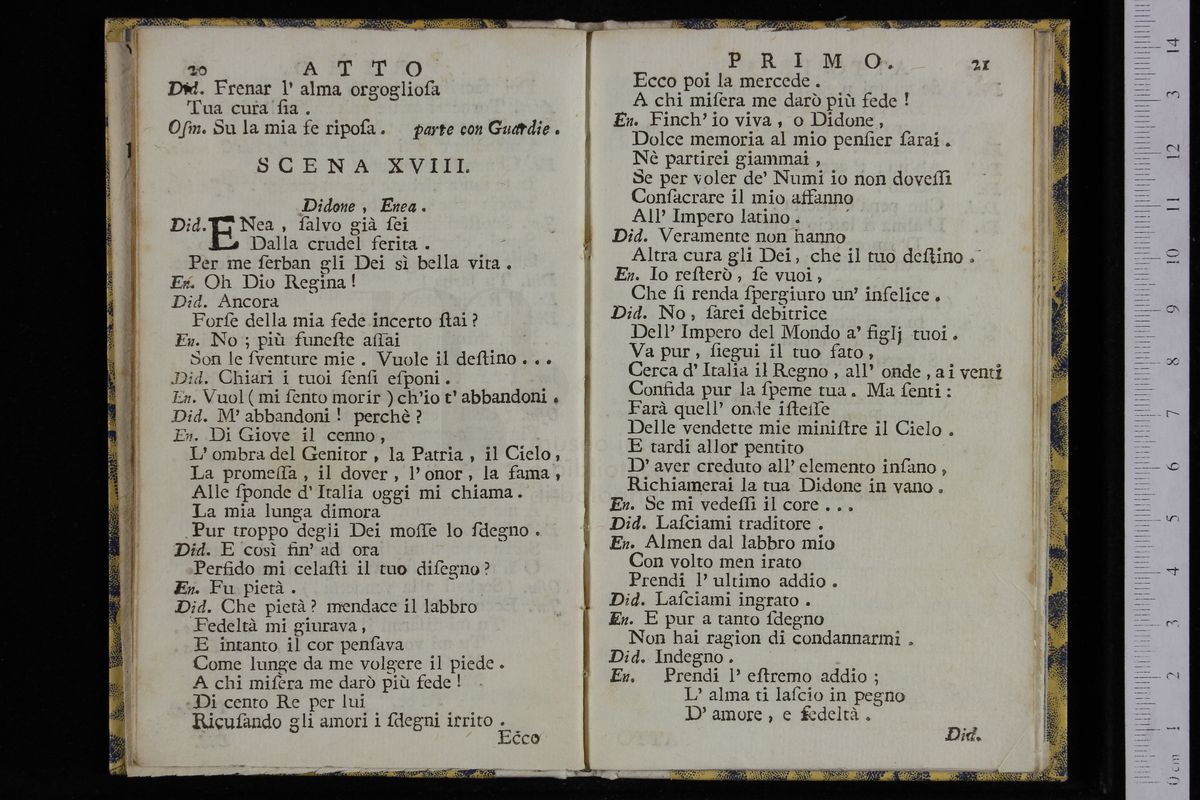 20 ATTO
Did. Frenar l' alma orgoglioſa
Tua cura ſia .
Oſm. Su la mia fe ripoſa . parte con Guardie .
SCENA XVIII.
Didone , Enea .
Did. ENea , ſalvo già ſei
Dalla crudel ferita .
Per me ſerban gli Dei sì bella vita .
En. Oh Dio Regina !
Did. Ancora
Forſe della mia fede incerto ſtai ?
En. No ; più funeſte aſſai
Son le ſventure mie . Vuole il deſtino . . .
Did. Chiari i tuoi ſenſi eſponi .
En. Vuol ( mi ſento morir ) ch'io t' abbandoni .
Did. M' abbandoni ! perchè ?
En. Di Giove il cenno ,
L' ombra del Genitor , la Patria , il Cielo ,
La promeſſa , il dover , l' onor , la fama ,
Alle ſponde d' Italia oggi mi chiama .
La mia lunga dimora
Pur troppo degli Dei moſſe lo ſdegno .
Did. E così fin' ad ora
Perfido mi celaſti il tuo diſegno ?
En. Fu pietà .
Did. Che pietà ? mendace il labbro
Fedeltà mi giurava ,
E intanto il cor penſava
Come lunge da me volgere il piede .
A chi miſera me darò più fede !
Di cento Re per lui
Ricuſando gli amori i ſdegni irrito .
Ecco
PRIMO. 21
Ecco poi la mercede .
A chi miſera me darò più fede !
En. Finch' io viva , o Didone ,
Dolce memoria al mio penſier ſarai .
Nè partirei giammai ,
Se per voler de' Numi io non doveſſi
Conſacrare il mio affanno
All' Impero latino .
Did. Veramente non hanno
Altra cura gli Dei , che il tuo deſtino .
En. Io reſterò , ſe vuoi ,
Che ſi renda ſpergiuro un' infelice .
Did. No , ſarei debitrice
Dell' Impero del Mondo a' figlj tuoi .
Va pur , ſiegui il tuo fato ,
Cerca d' Italia il Regno , all' onde , a i venti
Confida pur la ſpeme tua . Ma ſenti :
Farà quell' onde iſteſſe
Delle vendette mie miniſtre il Cielo .
E tardi allor pentito
D' aver creduto all' elemento inſano ,
Richiamerai la tua Didone in vano .
En. Se mi vedeſſi il core . . .
Did. Laſciami traditore .
En. Almen dal labbro mio
Con volto men irato
Prendi l' ultimo addio .
Did. Laſciami ingrato .
En. E pur a tanto ſdegno
Non hai ragion di condannarmi .
Did. Indegno .
En. Prendi l' eſtremo addio ;
L' alma ti laſcio in pegno
D' amore , e fedeltà .
Did.